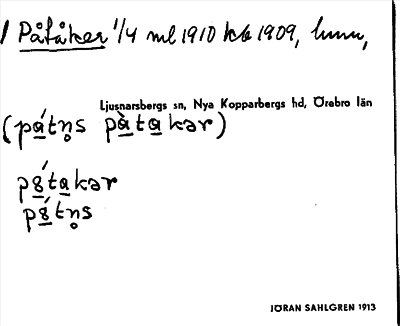 Påtåker 1/4 ml 1910 kb 1909, hmn,
Ljusnarsbergs sn, Nya Kopparbergs hd, Örebro län
(pátn̥s pàtakər)
pátakər
pátn̥s
JÖRAN SAHLGREN 1913